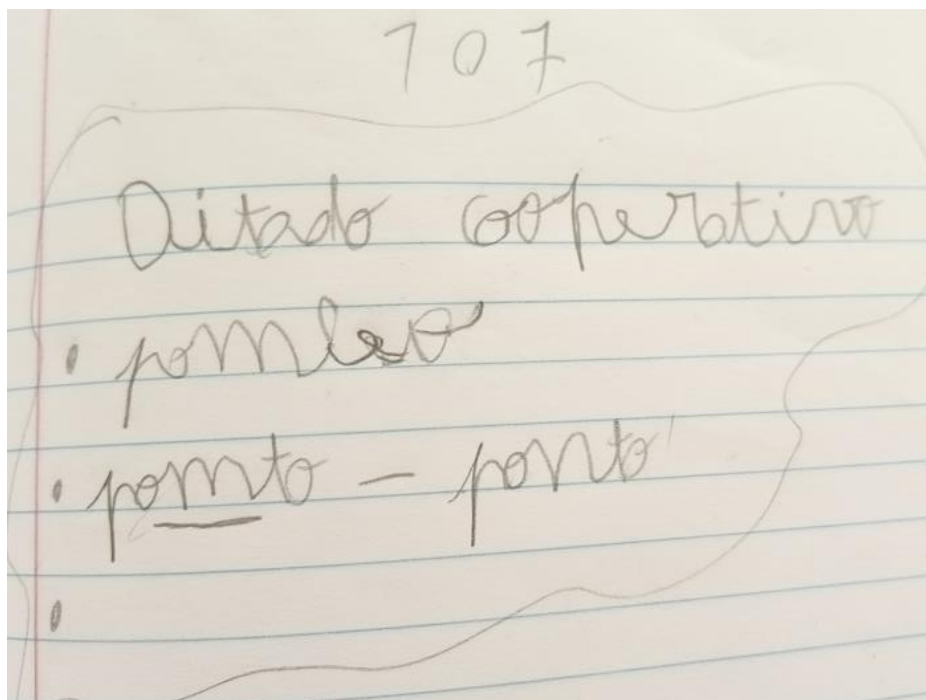 107
Ditado cooperativo
• pombo
• pomto - ponto
•